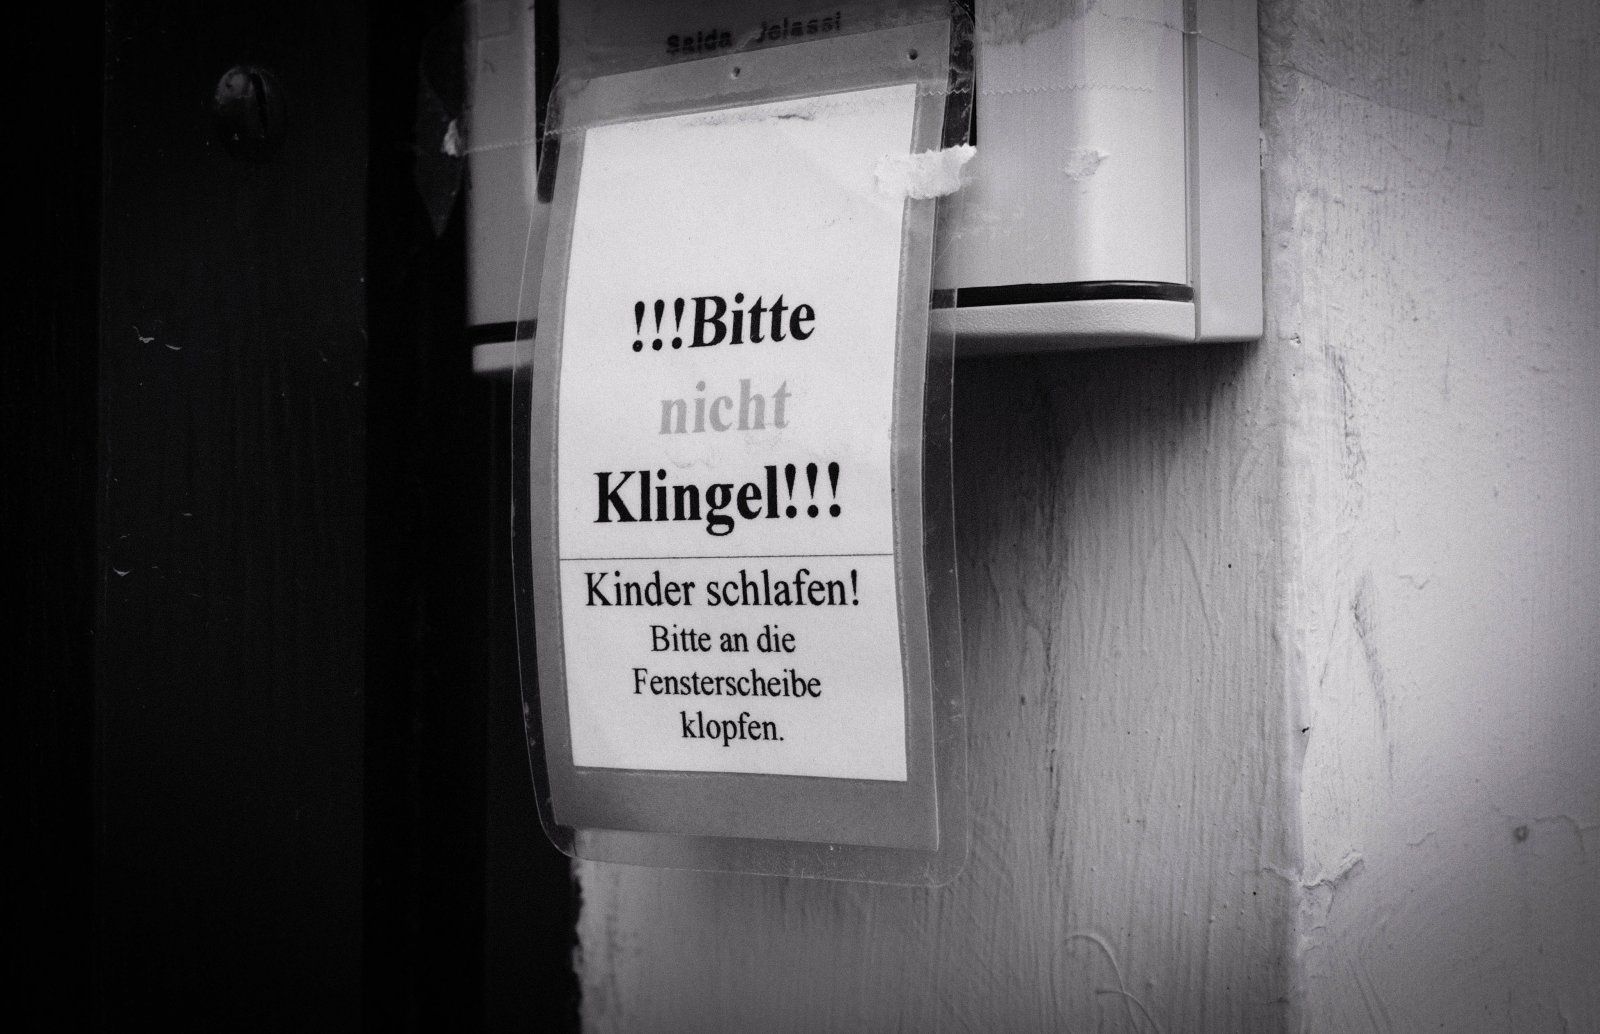 Saida Jelassi
!!!Bitte
nicht
Klingel!!!
Kinder schlafen!
Bitte an die
Fensterscheibe
klopfen.